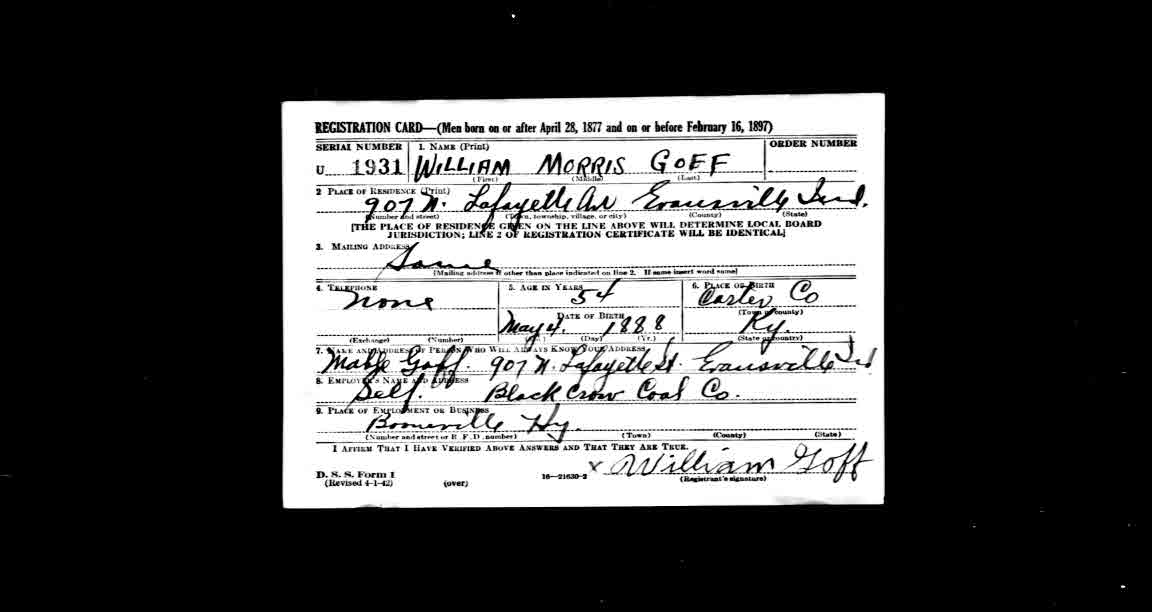 REGISTRATION CARD—(Men born on or after April 28, 1877 and on or before February 16, 1897)
SERIAL NUMBER 1. NAME (Print) ORDER NUMBER
U 1931 WILLIAM MORRIS GOFF
(First) (Middle) (Last)
2 PLACE OF RESIDENCE (Print)
907 N. Lafayette Av Evansville Ind.
(Number and street) (Town, township, village, or city) (County) (State)
[THE PLACE OF RESIDENCE GIVEN ON THE LINE ABOVE WILL DETERMINE LOCAL BOARD
JURISDICTION; LINE 2 OF REGISTRATION CERTIFICATE WILL BE IDENTICAL]
3. MAILING ADDRESS
Same
[Mailing address if other than place indicated on line 2. If same insert word same]
4. TELEPHONE 5. AGE IN YEARS 6. PLACE OF BIRTH
none 54 Carter Co
DATE OF BIRTH (Town or county)
May 4. 1888 Ky.
(Exchange) (Number) (Day) (Yr.) (State or country)
7. NAME AND ADDRESS OF PERSON WHO WILL ALWAYS KNOW YOUR ADDRESS
Mable Goff. 907 N. Lafayette St. Evansville Ind
8. EMPLOYER'S NAME AND ADDRESS
Self. Black Crow Coal Co.
9. PLACE OF EMPLOYMENT OR BUSINESS
Booneville Hy.
(Number and street or R. F. D. number) (Town) (County) (State)
I AFFIRM THAT I HAVE VERIFIED ABOVE ANSWERS AND THAT THEY ARE TRUE.
D. S. S. Form 1 16—21630-2 x William Goff
(Revised 4-1-42) (over) (Registrant's signature)